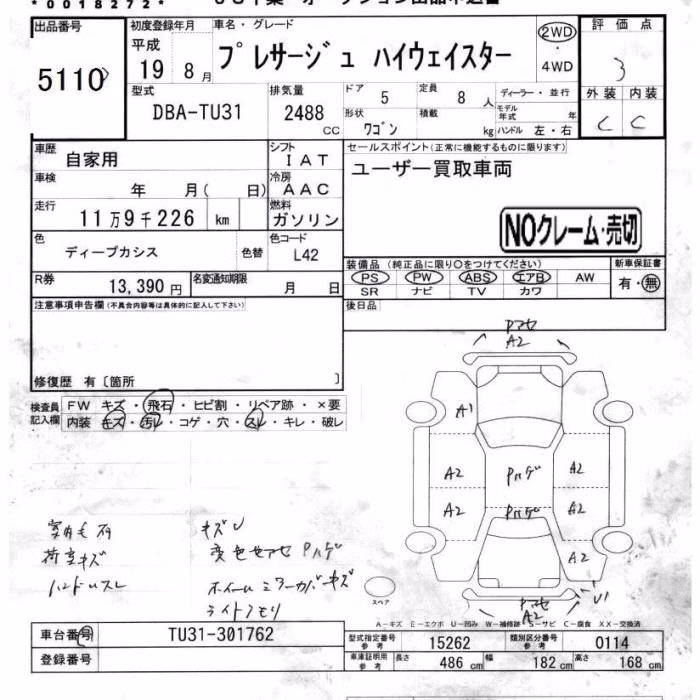 *0018272*
出品番号 初度登録年月 車名・グレード 評価点
5110 平成 19 8月 プレサージュ ハイウェイスター 2WD ・ 4WD 3
型式 排気量 ドア 定員 ディーラー・並行 外装 内装
DBA-TU31 2488 CC 5 8人 モデル年式 年 C C
形状 ワゴン 積載 kg ハンドル 左・右
車歴 自家用 シフト IAT セールスポイント(正常に機能するものに限ります)
車検 年 月( 日) 冷房 AAC ユーザー買取車両
走行 11万9千226 km 燃料 ガソリン NOクレーム・売切
色 ディープカシス 色替 色コード L42
装備品(純正品に限り○をつけてください) 新車保証書
R券 13,390円 名変通知期限 月 日 PS PW ABS エアB AW 有・無
SR ナビ TV カワ
注意事項申告欄(不具合内容等は具体的に記入して下さい) 後日品
修復歴 有〔箇所 〕
検査員記入欄 FW キズ・飛石・ヒビ割・リペア跡・×要
内装 キズ・汚レ・コゲ・穴・スレ・キレ・破レ
A2
A1
A2 Pハゲ A2
A2 Pハゲ A2
A2
A2 U1
荷室キズ
ハンドルスレ
キズU
ホイールミラーカバーキズ
ライトクモリ
スペア
A-キズ E-エクボ U-凹み W-補修跡 S-サビ C-腐食 XX-交換済
車台番号 TU31-301762 型式指定番号 参考 15262 類別区分番号 参考 0114
登録番号 車庫証明用 参考 長さ 486 cm 幅 182 cm 高さ 168 cm